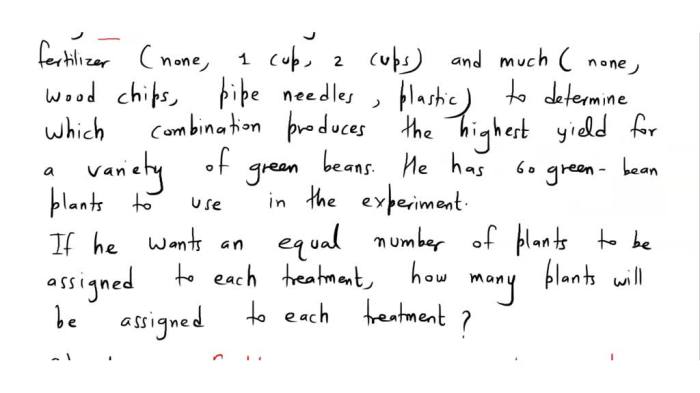 fertilizer (none, 1 cup, 2 cups) and much ( none,
wood chips, pipe needles, plastic) to determine
which combination produces the highest yield for
a variety of green beans. He has 60 green-bean
plants to use in the experiment.
If he wants an equal number of plants to be
assigned to each treatment, how many plants will
be assigned to each treatment?